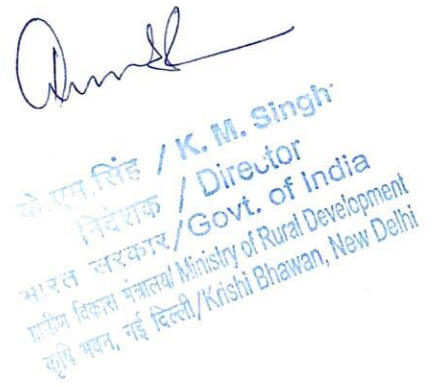 के.एम.सिंह / K. M. Singh
निदेशक / Director
भारत सरकार/Govt. of India
ग्रामीण विकास मंत्रालय/Ministry of Rural Development
कृषि भवन, नई दिल्ली/Krishi Bhawan, New Delhi